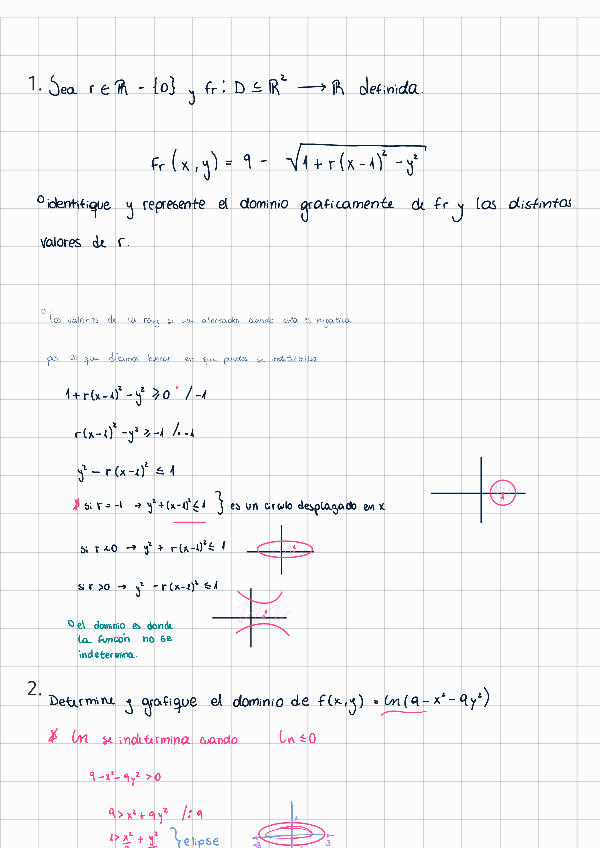 1. Sea r ∈ ℝ - {0} y fr: D ⊆ ℝ² → ℝ definida.
Fr(x,y) = 9 - √(1+r(x-1)² - y²)
identifique y represente el dominio graficamente de fr y los distintos
valores de r.
Los valores de la raiz se ven afectados cuando esta es negativa
por lo que debemos buscar en que puntos se indetermina
1+r(x-1)² - y² ≥ 0 /-1
r(x-1)² - y² ≥ -1 /·-1
y² - r(x-1)² ≤ 1
* si r = -1 → y²+(x-1)² ≤ 1 } es un circulo desplagado en x
1
si r<0 → y² + r(x-1)² ≤ 1
si r>0 → y² - r(x-1)² ≤ 1
el dominio es donde
la función no se
indetermina.
2. Determine y grafique el dominio de f(x,y) = ln(9-x²-9y²)
* ln se indetermina cuando ln ≤ 0
9-x²-9y² > 0
9 > x²+9y² /:9
1> x²/9 + y² } elipse
-3 3